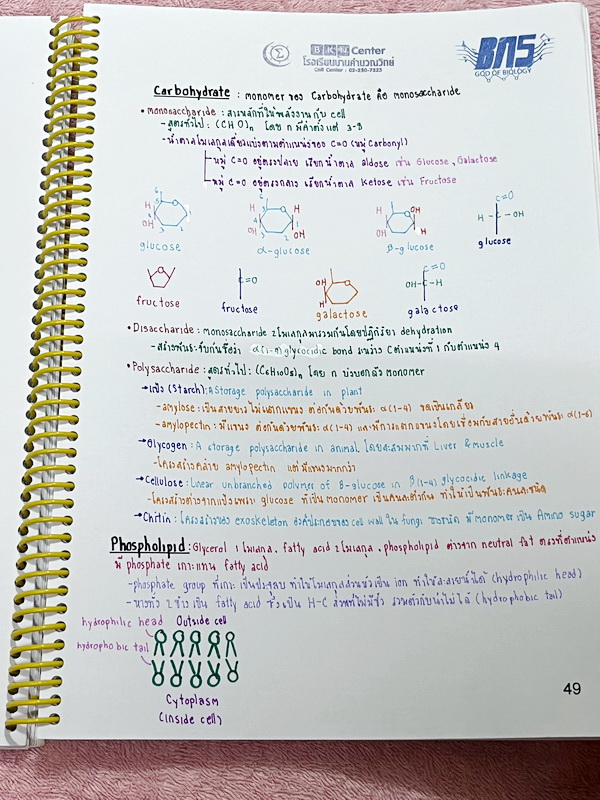 BKN Center
โรงเรียนบานคำนวณวิทย์
Call Center : 02-250-7323
BNS
GOD OF BIOLOGY
Carbohydrate : monomer ของ Carbohydrate คือ monosaccharide
• monosaccharide : สารหลักที่ให้พลังงานกับ cell
- สูตรทั่วไป : (CH O)n โดย n มีค่าตั้งแต่ 3-9
- น้ำตาลโมเลกุลเดี่ยวแบ่งตามตำแหน่งของ C=O (หมู่ Carbonyl)
หมู่ C=O อยู่ตรงปลาย เรียกน้ำตาล aldose เช่น Glucose, Galactose
หมู่ C=O อยู่ตรงกลาง เรียกน้ำตาล Ketose เช่น Fructose
glucose
α-glucose
β-glucose
glucose
fructose
fructose
galactose
galactose
• Disaccharide : monosaccharide 2 โมเลกุลมารวมกันโดยปฏิกิริยา dehydration
- สร้างพันธะจับกันชื่อว่า α(1-4) glycocidic bond ระหว่าง C ตำแหน่งที่ 1 กับตำแหน่ง 4
• Polysaccharide : สูตรทั่วไป : (C6H10O5)n โดย n บ่งบอกตัว monomer
→ แป้ง (Starch) : A Storage polysaccharide in plant
- amylose : เป็นสายยาวไม่แตกแขนง ต่อกันด้วยพันธะ α(1-4) ขดเป็นเกลียว
- amylopectin : มีแขนง ต่อกันด้วยพันธะ α(1-4) และมีการแตกแขนงโดยเชื่อมกับสายอื่นด้วยพันธะ α(1-6)
→ Glycogen : A storage polysaccharide in animal โดยสะสมมากที่ Liver & muscle
- โครงสร้างคล้าย amylopectin แต่มีแขนงมากกว่า
→ Cellulose : Linear unbranched polymer of β-glucose in β(1-4) glycocidic linkage
- โครงสร้างต่างจากแป้งเพราะ glucose ที่เป็น monomer เป็นคนละตัวกัน ทำให้เป็นพันธะคนละชนิด
→ Chitin : โครงสร้างของ exoskeleton องค์ประกอบของ cell wall ใน fungi มี monomer เป็น Amino sugar
Phospholipid : Glycerol 1 โมเลกุล, fatty acid 2 โมเลกุล, phospholipid ต่างจาก neutral fat ตรงที่ตำแหน่ง
มี phosphate เกาะแทน fatty acid
- phosphate group ที่เกาะ เป็นประจุลบ ทำให้โมเลกุลส่วนหัวเป็น ion ทำให้ละลายน้ำได้ (hydrophilic head)
- หางทั้ง 2 ข้าง เป็น fatty acid ซึ่งเป็น H-C ส่วนที่ไม่มีขั้ว รวมตัวกับน้ำไม่ได้ (hydrophobic tail)
hydrophilic head Outside cell
hydrophobic tail
Cytoplasm
(inside cell)
49